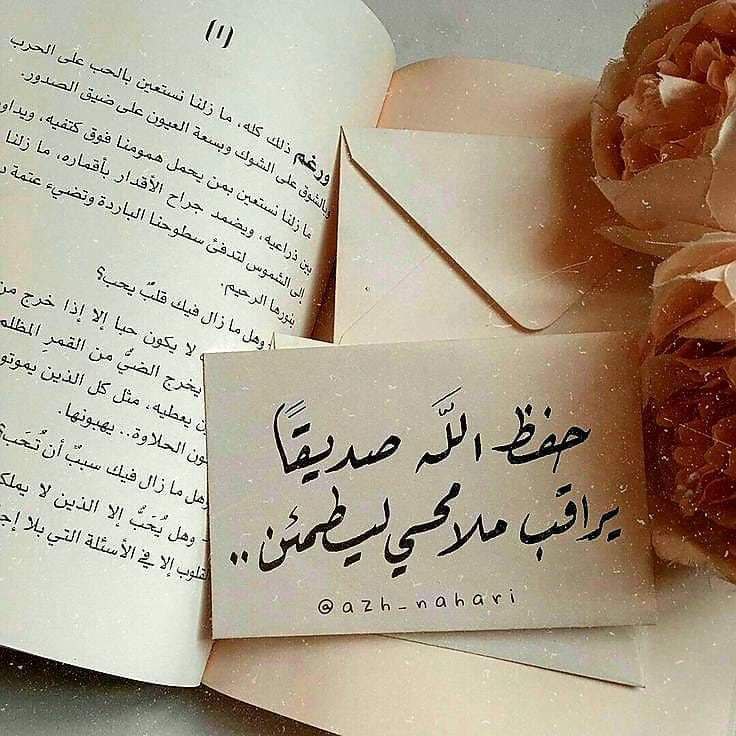 (١)
ورغم ذلك كله، ما زلنا نستعين بالحب على الحرب
وبالشوق على الشوك وبسعة العيون على ضيق الصدور.
ما زلنا نستعين بمن يحمل همومنا فوق كتفيه، ويداو
بين ذراعيه، ويضمد جراح الأقدار بأقماره، ما زلنا
إلى الشموس لتدفئ سطوحنا الباردة وتضيء عتمة
بنورها الرحيم.
وهل ما زال فيك قلبٌ يحب؟
لا يكون حبا إلا إذا خرج من
يخرج الضيُّ من القمرِ المظلم
يعطيه، مثل كل الذين يموتو
ون الحلاوة.. يهبونها.
وهل ما زال فيك سببٌ أن تُحَب؟
وهل يُحَبُّ إلا الذين لا يملك
القلوب إلا في الأسئلة التي بلا إج
حفظ اللَّه صديقًا
يراقب ملامحي ليطمئن ..
@azh_nahari